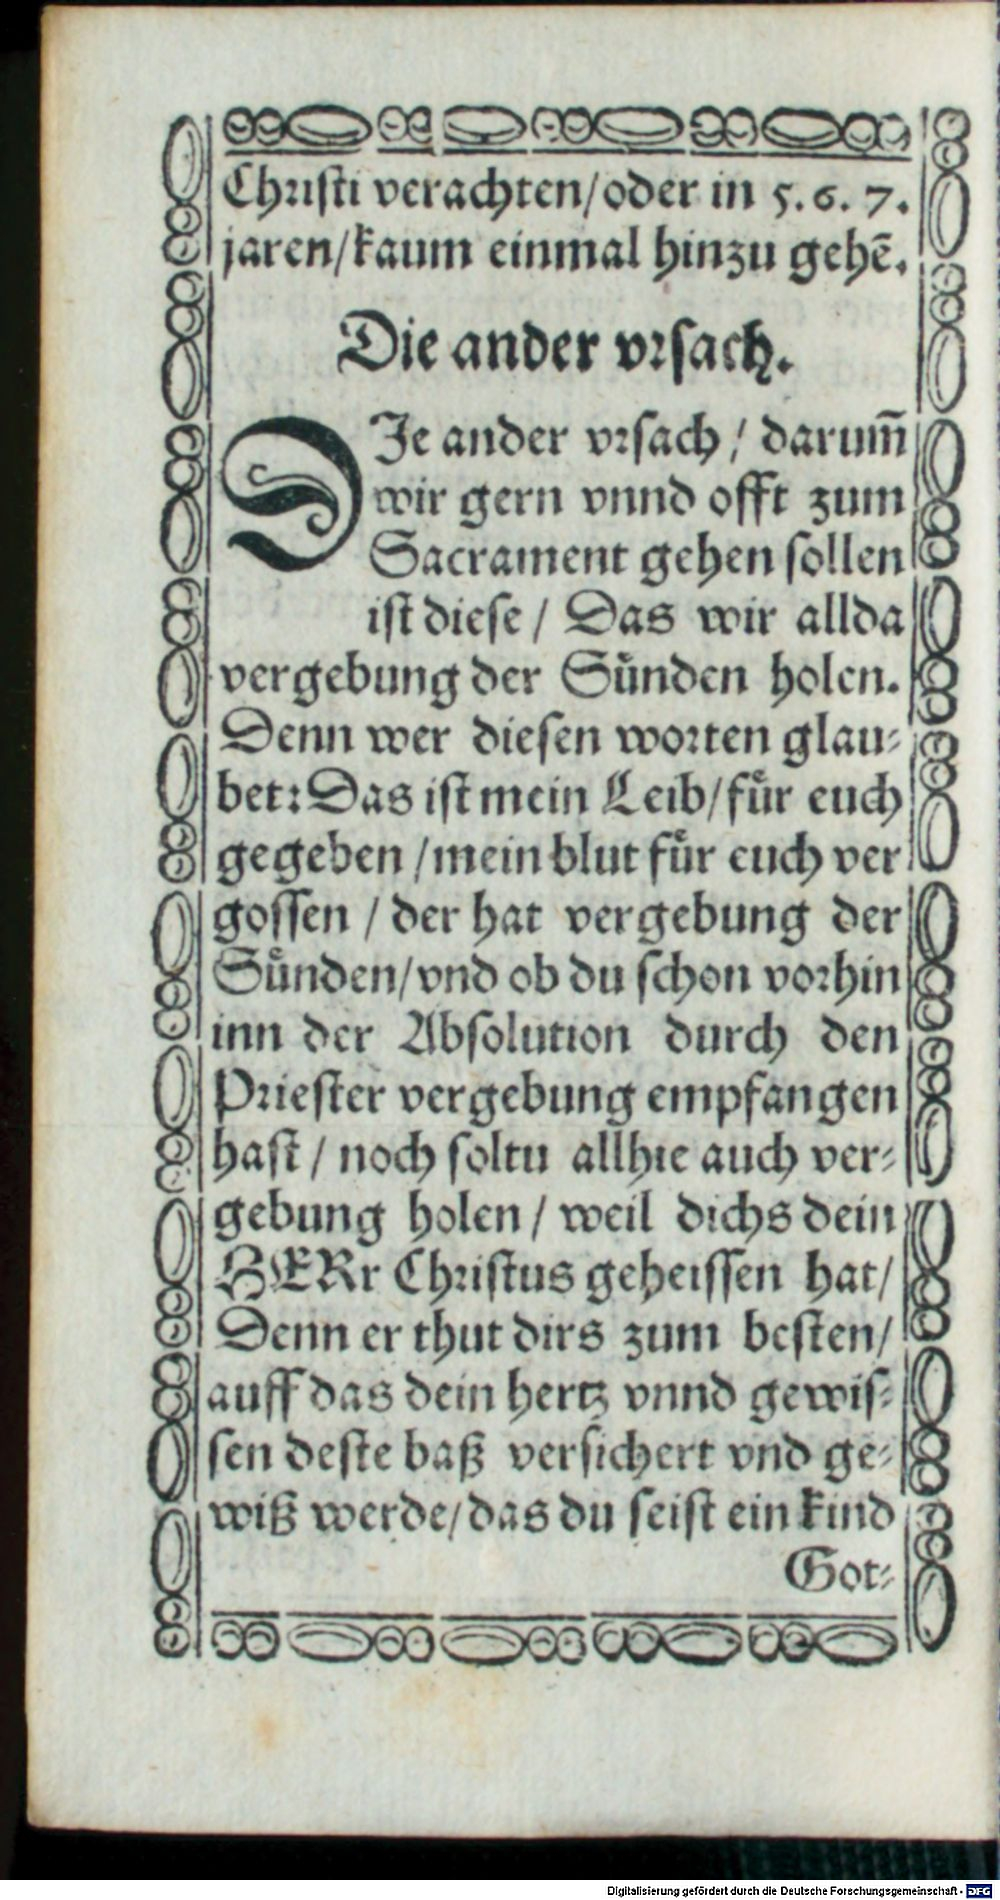 Christi verachten/oder in 5. 6. 7.
jaren/kaum einmal hinzu gehẽ.
Die ander vrsach.
DJe ander vrsach / darum̃
wir gern vnnd offt zum
Sacrament gehen sollen
ist diese / Das wir allda
vergebung der Suͤnden holen.
Denn wer diesen worten glau⸗
bet: Das ist mein Leib/fuͤr euch
gegeben /mein blut fuͤr euch ver
gossen / der hat vergebung der
Suͤnden/vnd ob du schon vorhin
inn der Absolution durch den
Priester vergebung empfangen
hast / noch soltu allhie auch ver⸗
gebung holen / weil dichs dein
HERr Christus geheissen hat/
Denn er thut dirs zum besten/
auff das dein hertz vnnd gewis⸗
sen deste baß versichert vnd ge⸗
wiß werde/das du seist ein kind
Got⸗
Digitalisierung gefördert durch die Deutsche Forschungsgemeinschaft - DFG